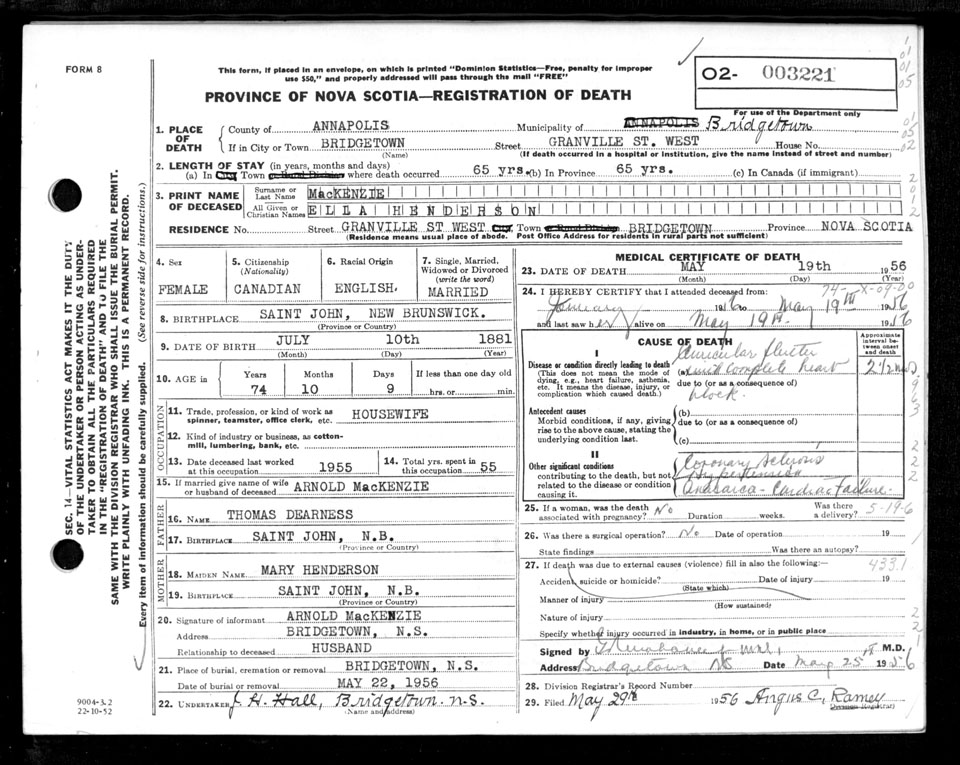 FORM 8
This form, if placed in an envelope, on which is printed "Dominion Statistics—Free, penalty for improper
use $50," and properly addressed will pass through the mail "FREE"
O2- 003221
For use of the Department only
PROVINCE OF NOVA SCOTIA—REGISTRATION OF DEATH
1. PLACE OF DEATH { County of ANNAPOLIS Municipality of ANNAPOLIS Bridgetown
If in City or Town BRIDGETOWN Street GRANVILLE ST. WEST House No.
(Name) (If death occurred in a hospital or institution, give the name instead of street and number)
2. LENGTH OF STAY (in years, months and days)
(a) In City Town or Rural Division where death occurred 65 yrs. (b) In Province 65 yrs. (c) In Canada (if immigrant)
3. PRINT NAME OF DECEASED { Surname or Last Name MacKENZIE
All Given or Christian Names ELLA HENDERSON
RESIDENCE No. Street GRANVILLE ST WEST City, Town or Rural Division BRIDGETOWN Province NOVA SCOTIA
(Residence means usual place of abode. Post Office Address for residents in rural parts not sufficient)
SEC. 14—VITAL STATISTICS ACT MAKES IT THE DUTY
OF THE UNDERTAKER OR PERSON ACTING AS UNDER-
TAKER TO OBTAIN ALL THE PARTICULARS REQUIRED
IN THE "REGISTRATION OF DEATH" AND TO FILE THE
SAME WITH THE DIVISION REGISTRAR WHO SHALL ISSUE THE BURIAL PERMIT.
WRITE PLAINLY WITH UNFADING INK. THIS IS A PERMANENT RECORD.
Every item of information should be carefully supplied. (See reverse side for instructions.)
4. Sex
FEMALE
5. Citizenship
(Nationality)
CANADIAN
6. Racial Origin
ENGLISH.
7. Single, Married,
Widowed or Divorced
(write the word)
MARRIED
8. BIRTHPLACE SAINT JOHN, NEW BRUNSWICK.
(Province or Country)
9. DATE OF BIRTH JULY 10th 1881
(Month) (Day) (Year)
10. AGE in Years Months Days If less than one day old
74 10 9 hrs. or min.
OCCUPATION
11. Trade, profession, or kind of work as
spinner, teamster, office clerk, etc. HOUSEWIFE
12. Kind of industry or business, as cotton-
mill, lumbering, bank, etc.
13. Date deceased last worked
at this occupation 1955
14. Total yrs. spent in
this occupation 55
15. If married give name of wife
or husband of deceased ARNOLD MacKENZIE
FATHER
16. NAME THOMAS DEARNESS
17. BIRTHPLACE SAINT JOHN, N.B.
(Province or Country)
MOTHER
18. MAIDEN NAME MARY HENDERSON
19. BIRTHPLACE SAINT JOHN, N.B.
(Province or Country)
20. Signature of informant ARNOLD MacKENZIE
Address BRIDGETOWN, N.S.
Relationship to deceased HUSBAND
21. Place of burial, cremation or removal BRIDGETOWN, N.S.
Date of burial or removal MAY 22, 1956
22. UNDERTAKER J. H. Hall, Bridgetown. N.S.
(Name and address)
9004-3.2
22-10-52
MEDICAL CERTIFICATE OF DEATH
23. DATE OF DEATH MAY 19th 1956
(Month) (Day) (Year)
24. I HEREBY CERTIFY that I attended deceased from:
January 1956 to May 19th 1956
and last saw her alive on May 19th 1956
CAUSE OF DEATH
Approximate interval between onset and death
I
Disease or condition directly leading to death
(This does not mean the mode of
dying, e.g., heart failure, asthenia,
etc. It means the disease, injury, or
complication which caused death.)
(a) Auricular flutter
with complete heart
due to (or as a consequence of)
block.
2 1/2
Antecedent causes
Morbid conditions, if any, giving
rise to the above cause, stating the
underlying condition last.
(b)
due to (or as a consequence of)
(c)
II
Other significant conditions
contributing to the death, but not
related to the disease or condition
causing it.
Coronary Sclerosis
Hypertension
Anasarca - Cardiac Failure.
25. If a woman, was the death
associated with pregnancy? No Duration weeks. Was there
a delivery? 5-19-6
26. Was there a surgical operation? No Date of operation 19
State findings Was there an autopsy?
27. If death was due to external causes (violence) fill in also the following:— 433.1
Accident, suicide or homicide? Date of injury 19
(State which)
Manner of injury
(How sustained)
Nature of injury
Specify whether injury occurred in industry, in home, or in public place
Signed by M.D.
Address Bridgetown NS Date May 25 1956
28. Division Registrar's Record Number
29. Filed May 29th 1956 Angus C. Ramey
Division Registrar